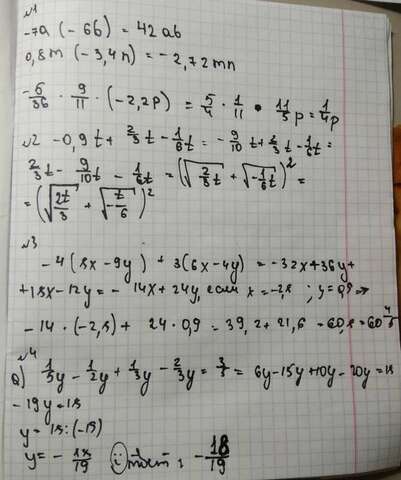 №1
-7a (-6б) = 42 ab
0,8m (-3,4n) = -2,72mn
-5/36 · 9/11 · (-2,2p) = 5/4 · 1/11 · 11/5 p = 1/4 p
№2 -0,9t + 2/3 t - 1/6 t = -9/10 t + 2/3 t - 1/6 t =
2/3 t - 9/10 t - 1/6 t = (√(2/3 t) + √(-1/6 t))² =
= (√(2t/3) + √(-t/6))²
№3
-4(8x-9y) + 3(6x-4y) = -32x+36y+
+18x-12y = -14x+24y, если x=-2,8 ; y=0,9 =>
-14·(-2,8) + 24·0,9 = 39,2+21,6 = 60,8 = 60 4/5
№4
a) 1/5 y - 1/2 y + 1/3 y - 2/3 y = 3/5 = 6y-15y+10y-20y=18
-19y=18
y=18:(-19)
y= - 18/19 Ответ: - 18/19